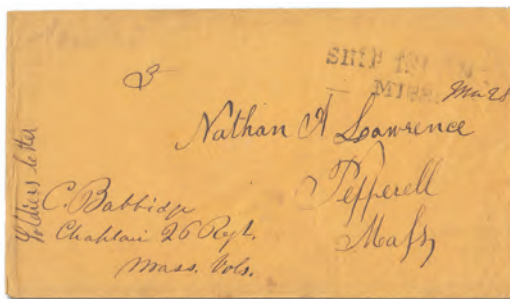 3
SHIP ISLAND
MISS. Mar 28
Nathan A Lawrence
Pepperell
Mass
Soldiers letter
C. Babbidge
Chaplain 26 Regt.
Mass. Vols.